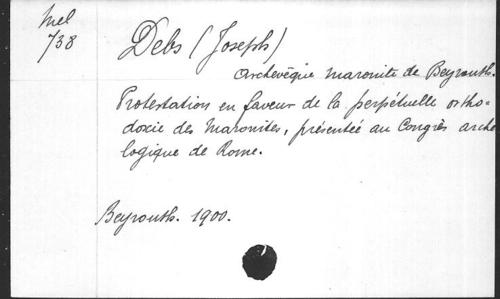 Mel
738
Debs (Joseph)
Archevêque maronite de Beyrouth.
Protestation en faveur de la perpétuelle ortho-
doxie des Maronites, présentée au Congrès arché
logique de Rome.
Beyrouth. 1900.